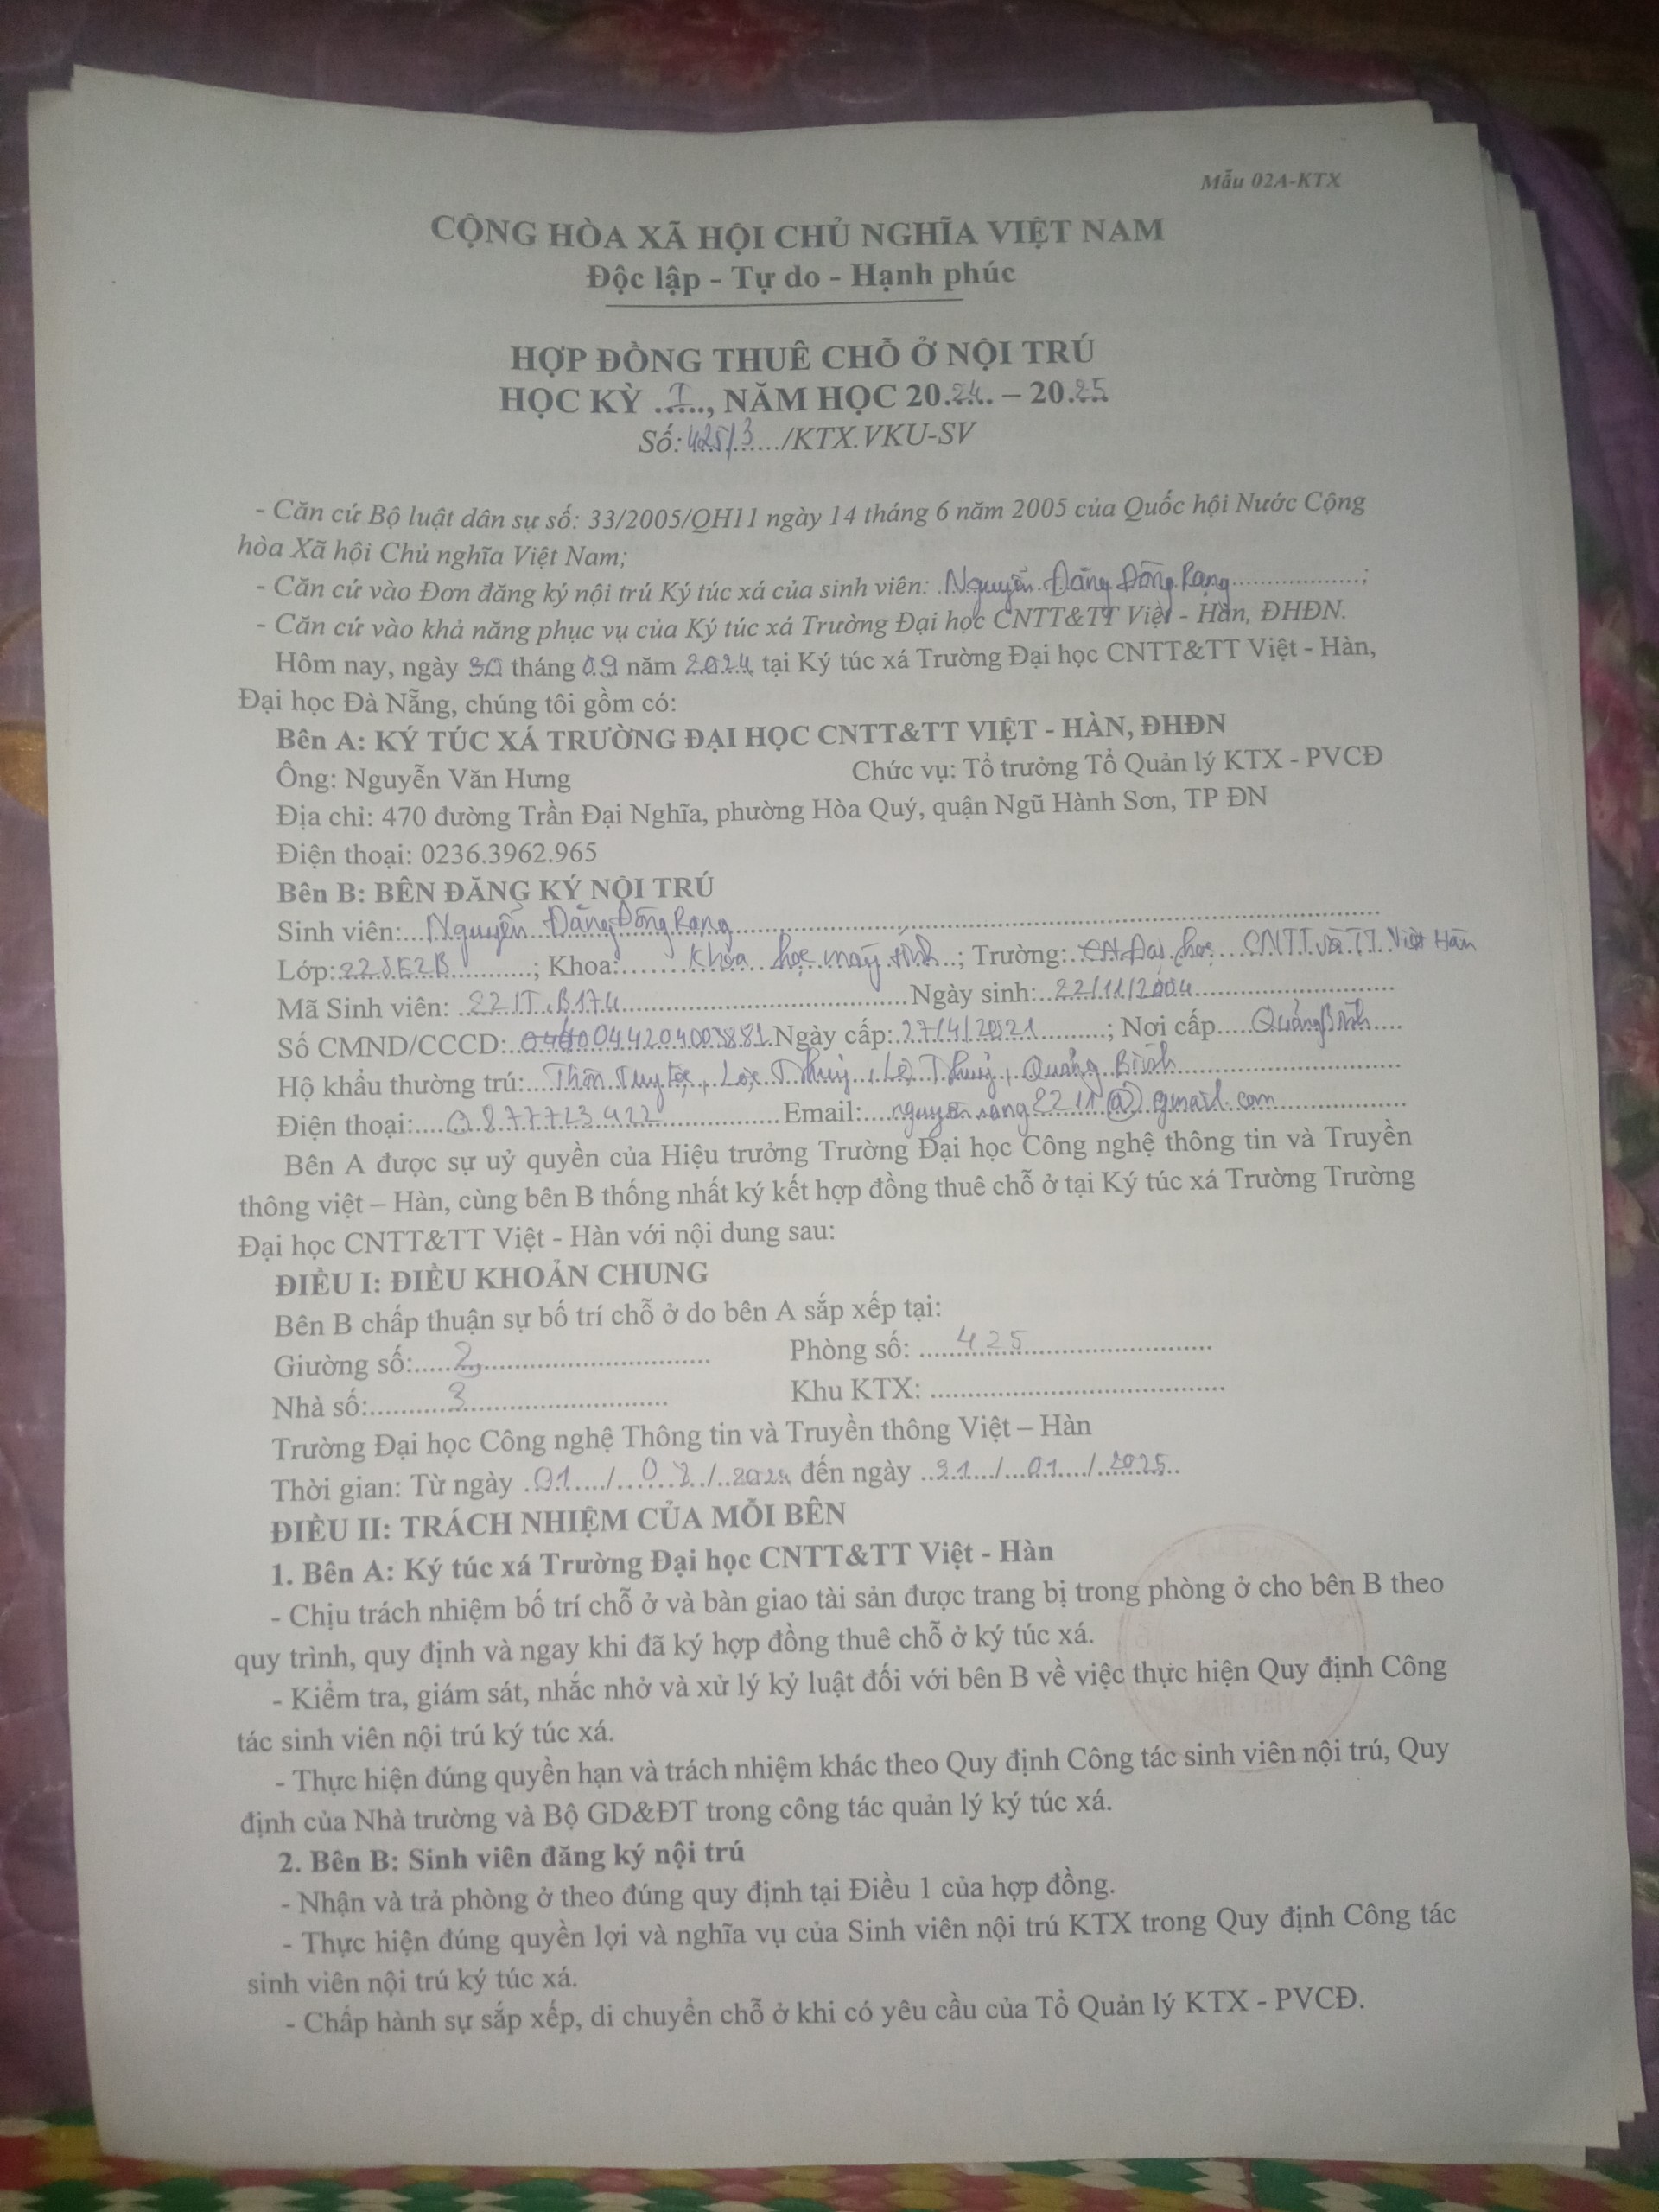 Mẫu 02A-KTX
CỘNG HÒA XÃ HỘI CHỦ NGHĨA VIỆT NAM
Độc lập - Tự do - Hạnh phúc
HỢP ĐỒNG THUÊ CHỖ Ở NỘI TRÚ
HỌC KỲ ..I..., NĂM HỌC 20.24. – 20.25
Số:425/3..../KTX.VKU-SV
- Căn cứ Bộ luật dân sự số: 33/2005/QH11 ngày 14 tháng 6 năm 2005 của Quốc hội Nước Cộng
hòa Xã hội Chủ nghĩa Việt Nam;
- Căn cứ vào Đơn đăng ký nội trú Ký túc xá của sinh viên: Nguyễn Đăng Đông Rang..................;
- Căn cứ vào khả năng phục vụ của Ký túc xá Trường Đại học CNTT&TT Việt - Hàn, ĐHĐN.
Hôm nay, ngày 30 tháng 09 năm 2024 tại Ký túc xá Trường Đại học CNTT&TT Việt - Hàn,
Đại học Đà Nẵng, chúng tôi gồm có:
Bên A: KÝ TÚC XÁ TRƯỜNG ĐẠI HỌC CNTT&TT VIỆT - HÀN, ĐHĐN
Ông: Nguyễn Văn Hưng Chức vụ: Tổ trưởng Tổ Quản lý KTX - PVCĐ
Địa chỉ: 470 đường Trần Đại Nghĩa, phường Hòa Quý, quận Ngũ Hành Sơn, TP ĐN
Điện thoại: 0236.3962.965
Bên B: BÊN ĐĂNG KÝ NỘI TRÚ
Sinh viên:...Nguyễn Đăng Đông Rang
Lớp:22SE2B...........; Khoa:........Khoa học máy tính..; Trường: Đại học CNTT và TT Việt Hàn
Mã Sinh viên: 22IT.B174......Ngày sinh:..22/11/2004
Số CMND/CCCD: 044204003881 Ngày cấp: 27/4/2021.........; Nơi cấp.....Quảng Bình....
Hộ khẩu thường trú:...Thôn Tuy Lộc, Lộc Thuỷ, Lệ Thuỷ, Quảng Bình
Điện thoại:....0877723422......Email:
Bên A được sự uỷ quyền của Hiệu trưởng Trường Đại học Công nghệ thông tin và Truyền
thông việt – Hàn, cùng bên B thống nhất ký kết hợp đồng thuê chỗ ở tại Ký túc xá Trường Trường
Đại học CNTT&TT Việt - Hàn với nội dung sau:
ĐIỀU I: ĐIỀU KHOẢN CHUNG
Bên B chấp thuận sự bố trí chỗ ở do bên A sắp xếp tại:
Giường số:.....2...... Phòng số: .....425......
Nhà số:..........3.......... Khu KTX: ..........
Trường Đại học Công nghệ Thông tin và Truyền thông Việt – Hàn
Thời gian: Từ ngày .01..../...08./..2024 đến ngày ..31.../...01..../.2025..
ĐIỀU II: TRÁCH NHIỆM CỦA MỖI BÊN
1. Bên A: Ký túc xá Trường Đại học CNTT&TT Việt - Hàn
- Chịu trách nhiệm bố trí chỗ ở và bàn giao tài sản được trang bị trong phòng ở cho bên B theo
quy trình, quy định và ngay khi đã ký hợp đồng thuê chỗ ở ký túc xá.
- Kiểm tra, giám sát, nhắc nhở và xử lý kỷ luật đối với bên B về việc thực hiện Quy định Công
tác sinh viên nội trú ký túc xá.
- Thực hiện đúng quyền hạn và trách nhiệm khác theo Quy định Công tác sinh viên nội trú, Quy
định của Nhà trường và Bộ GD&ĐT trong công tác quản lý ký túc xá.
2. Bên B: Sinh viên đăng ký nội trú
- Nhận và trả phòng ở theo đúng quy định tại Điều 1 của hợp đồng.
- Thực hiện đúng quyền lợi và nghĩa vụ của Sinh viên nội trú KTX trong Quy định Công tác
sinh viên nội trú ký túc xá.
- Chấp hành sự sắp xếp, di chuyển chỗ ở khi có yêu cầu của Tổ Quản lý KTX - PVCĐ.